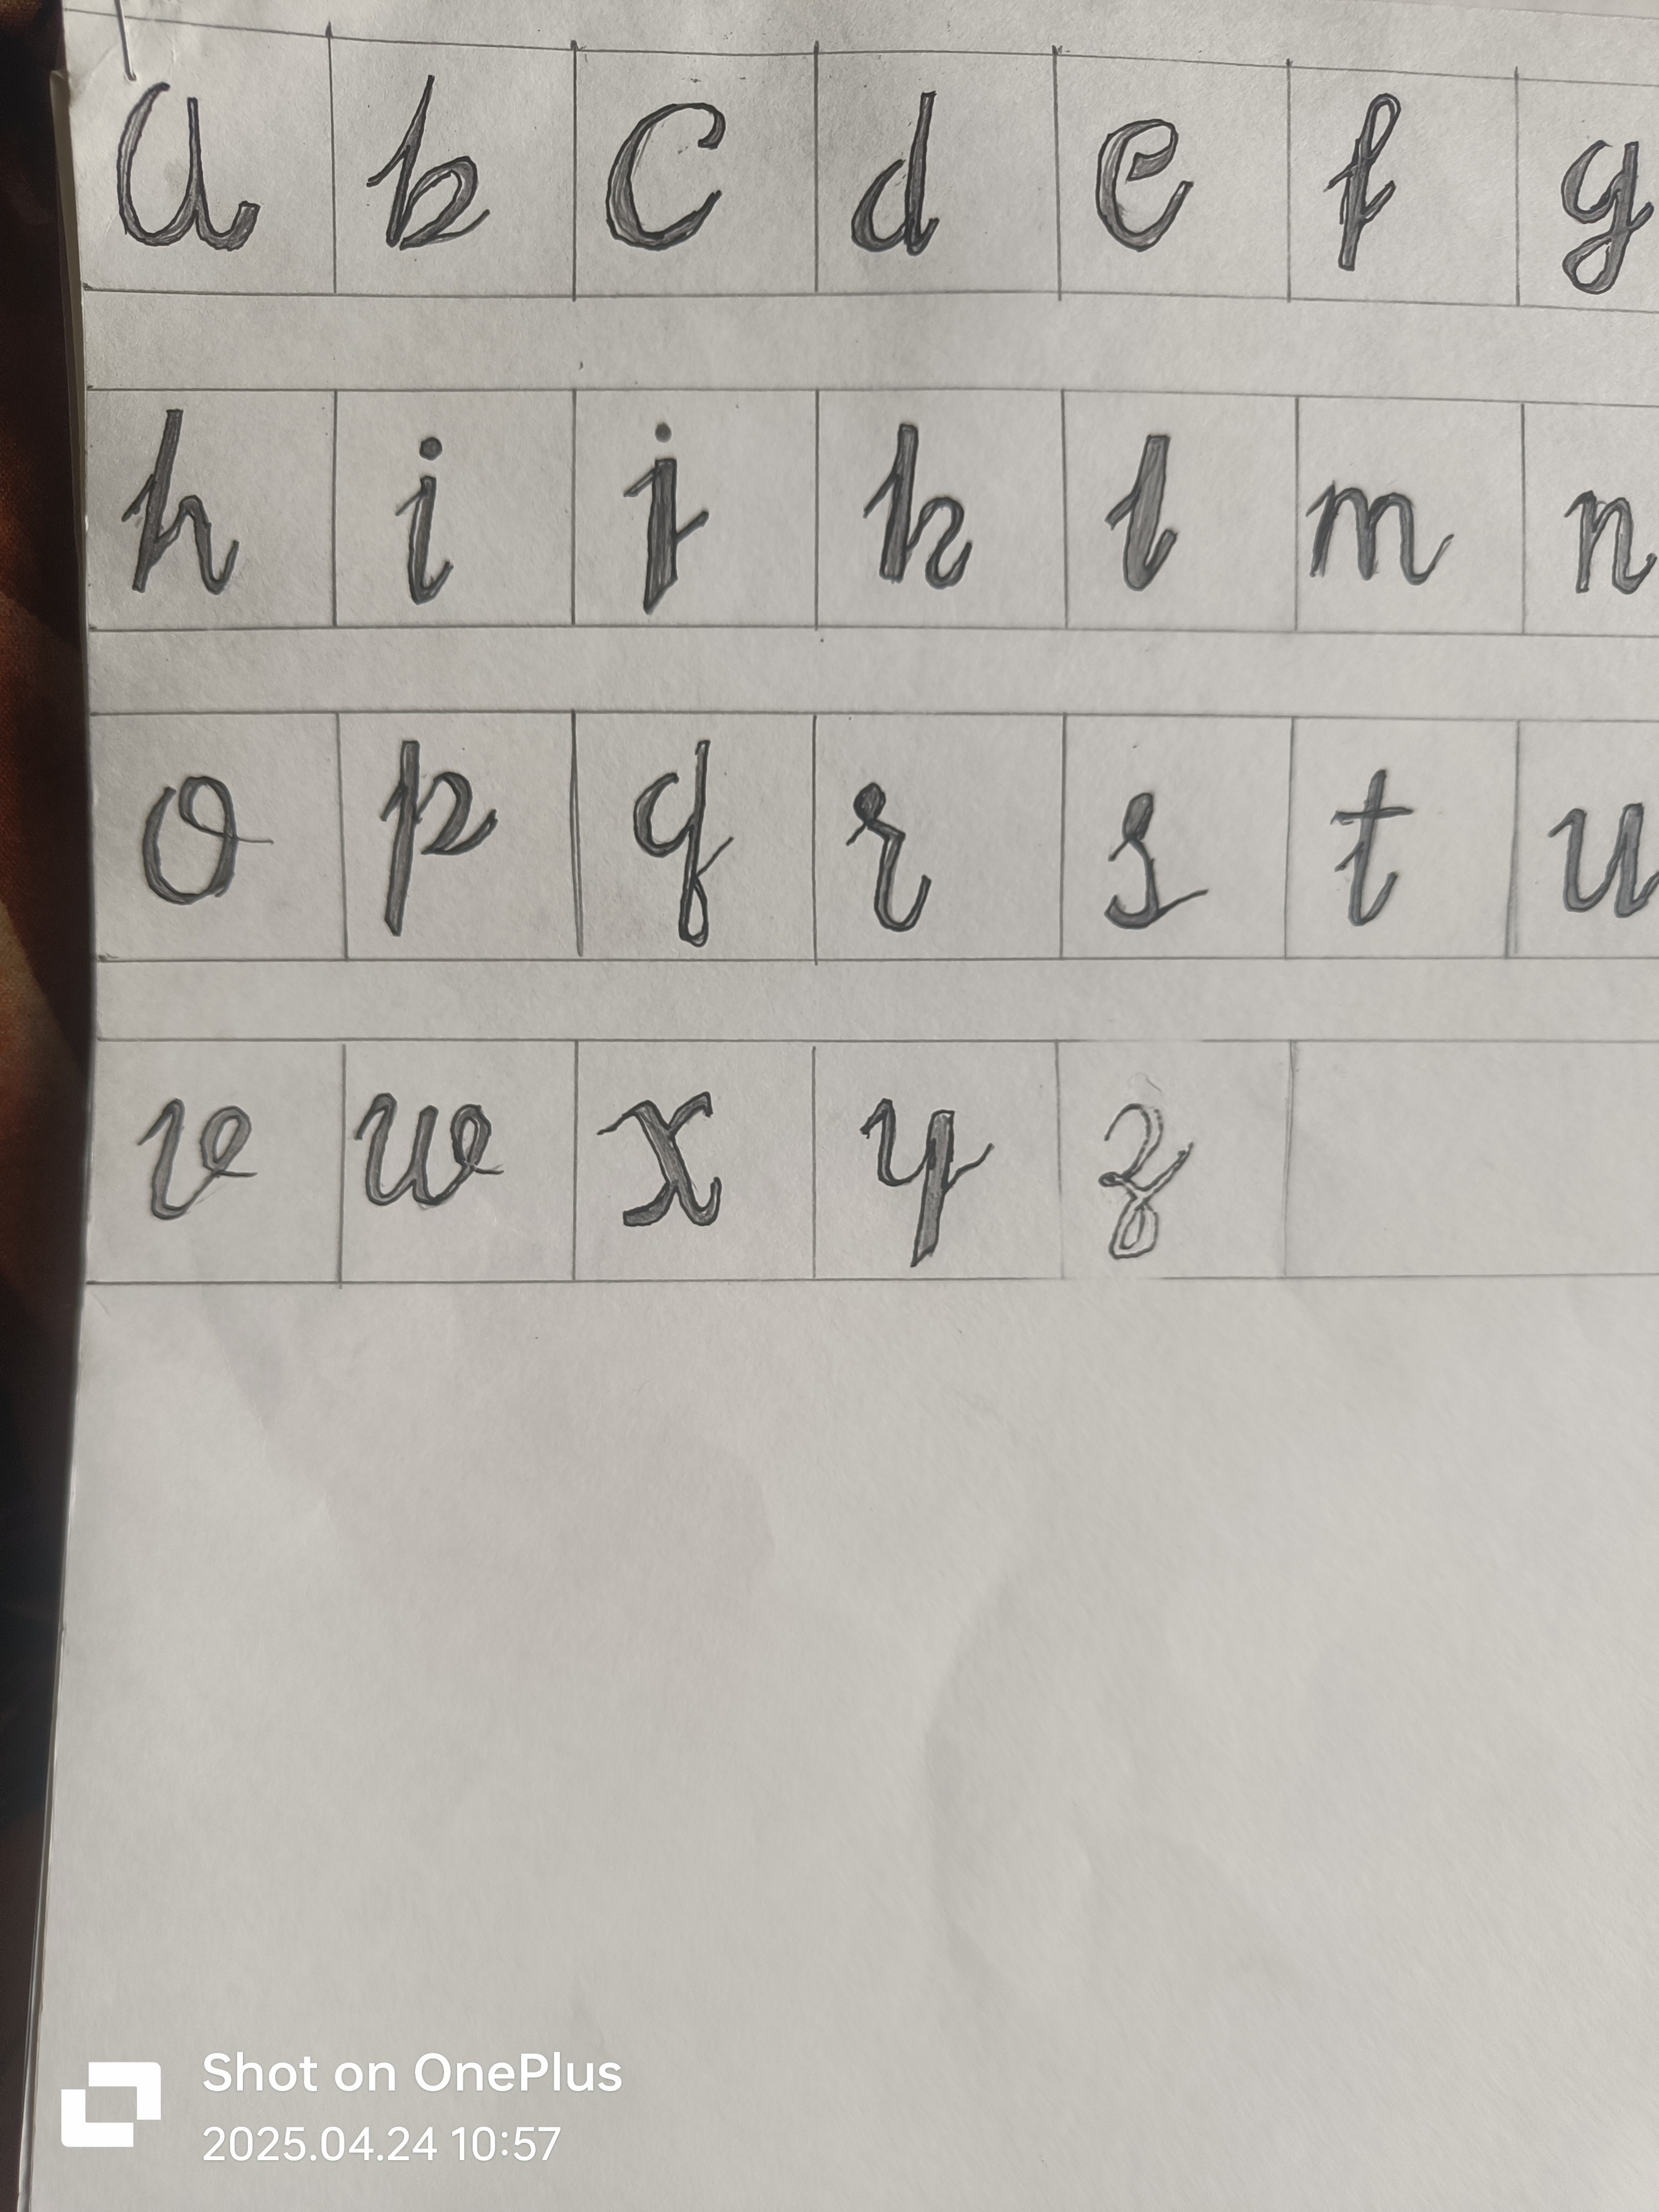 a b c d e f g
h i j k l m n
o p q r s t u
v w x y z
Shot on OnePlus
2025.04.24 10:57